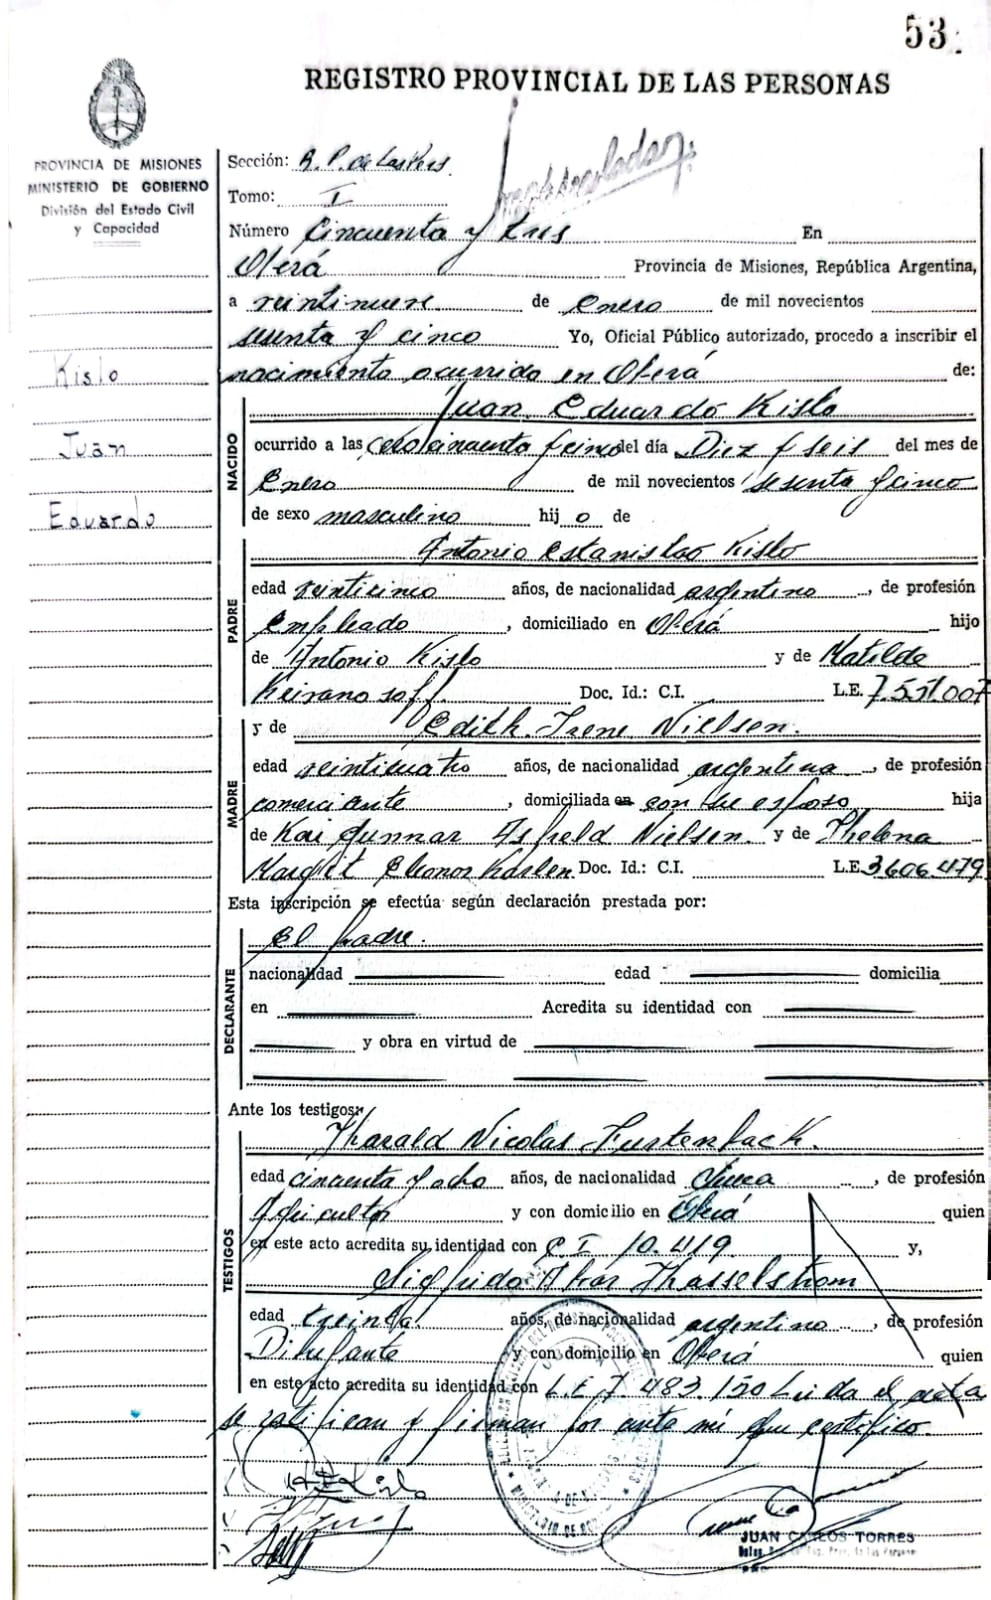 53
REGISTRO PROVINCIAL DE LAS PERSONAS
PROVINCIA DE MISIONES
MINISTERIO DE GOBIERNO
División del Estado Civil
y Capacidad
Sección: R. P. de Las Pers.
Tomo: I
Número Cincuenta y tres En
Oberá Provincia de Misiones, República Argentina,
a veintinueve de Enero de mil novecientos
sesenta y cinco Yo, Oficial Público autorizado, procedo a inscribir el
nacimiento ocurrido en Oberá de:
Kislo
Juan
Eduardo
NACIDO
Juan Eduardo Kislo
ocurrido a las cero cincuenta y cinco del día Diez y seis del mes de
Enero de mil novecientos sesenta y cinco
de sexo masculino hijo de
PADRE
Antonio Estanislao Kislo
edad veinticinco años, de nacionalidad argentino, de profesión
Empleado, domiciliado en Oberá hijo
de Antonio Kislo y de Matilde
Doc. Id.: C.I. L.E. 7.551.007
MADRE
y de Edith Irene Nielsen.
edad veinticuatro años, de nacionalidad argentina, de profesión
comerciante, domiciliada en con su esposo hija
de Kai Gunnar Nielsen. y de Thelena
Margit Eleonor Doc. Id.: C.I. L.E 3606.479
Esta inscripción se efectúa según declaración prestada por:
DECLARANTE
El padre.
nacionalidad edad domicilia
en Acredita su identidad con
y obra en virtud de
Ante los testigos:
TESTIGOS
Tharald Nicolas
edad cincuenta y ocho años, de nacionalidad, de profesión
Agricultor y con domicilio en Oberá quien
en este acto acredita su identidad con C I 10.419. y,
Sigfrido Thasselstrom
edad treinta años, de nacionalidad argentino, de profesión
Dibujante y con domicilio en Oberá quien
en este acto acredita su identidad con L.E 7.483.150 Leida el acta
se ratifican y firman por ante mi que certifico.
JUAN CARLOS TORRES